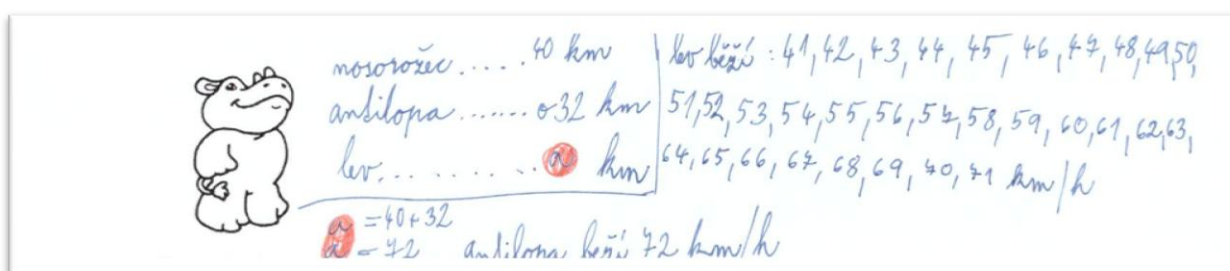 nosorožec.....40 km
antilopa.......o 32 km
lev............a km
a = 40 + 32
a = 72 antilopa běží 72 km/h
lev běží : 41, 42, 43, 44, 45, 46, 47, 48, 49, 50,
51, 52, 53, 54, 55, 56, 57, 58, 59, 60, 61, 62, 63,
64, 65, 66, 67, 68, 69, 70, 71 km/h